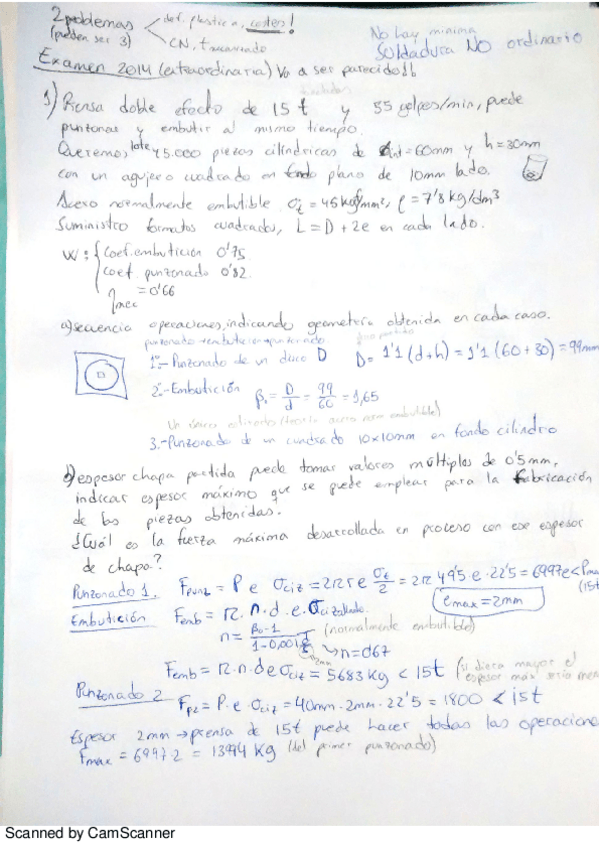 2 problemas < def. plástica, costes!
(pueden ser 3) < CN, t mecanizado
No hay mínima
Soldadura NO ordinario
Examen 2014 (extraordinaria) Va a ser parecido!!
1) Prensa doble efecto de 15 t y 55 golpes/min, puede
punzonar y embutir al mismo tiempo.
Queremos lote 75.000 piezas cilíndricas de int = 60mm y h = 30mm
con un agujero cuadrado en fondo plano de 10mm lado.
Acero normalmente embutible σt = 45 kgf/mm², ρ = 7'8 kg/dm³
Suministro formatos cuadrados, L = D + 2e en cada lado.
W: { Coef. embutición 0'75
coef punzonado 0'82
ηmec = 0'66
a) secuencia operaciones, indicando geometría obtenida en cada caso.
punzonado + embutición + punzonado
1º.- Punzonado de un disco D D = 1'1 (d+h) = 1'1 (60 + 30) = 99mm
D
2.- Embutición β₁ = D/d = 99/60 = 1,65
3.- Punzonado de un cuadrado 10x10mm en fondo cilindro
b) espesor chapa partida puede tomar valores múltiplos de 0'5mm,
indicar espesor máximo que se puede emplear para la fabricación
de las piezas obtenidas.
¿Cuál es la fuerza máxima desarrollada en proceso con ese espesor
de chapa?
Punzonado 1. Fpunz = P e σciz = 2π r e σt/2 = 2π 49'5 · e · 22'5 = 6997e < Pmax (15t
emax = 2mm
Embutición Femb = π · n · d · e · σcizallad.
n = β₀-1 / 1-0,001 (normalmente embutible)
↳ n = 0'67
Femb = π · n · d e σciz = 5683 Kg < 15t (si diera mayor el
espesor max sería menor
Punzonado 2 Fp2 = P · e · σciz = 40mm · 2mm · 22'5 = 1800 < 15t
Espesor 2mm → prensa de 15t puede hacer todas las operaciones
Fmax = 6997 2 = 13994 Kg (del primer punzonado)
Scanned by CamScanner